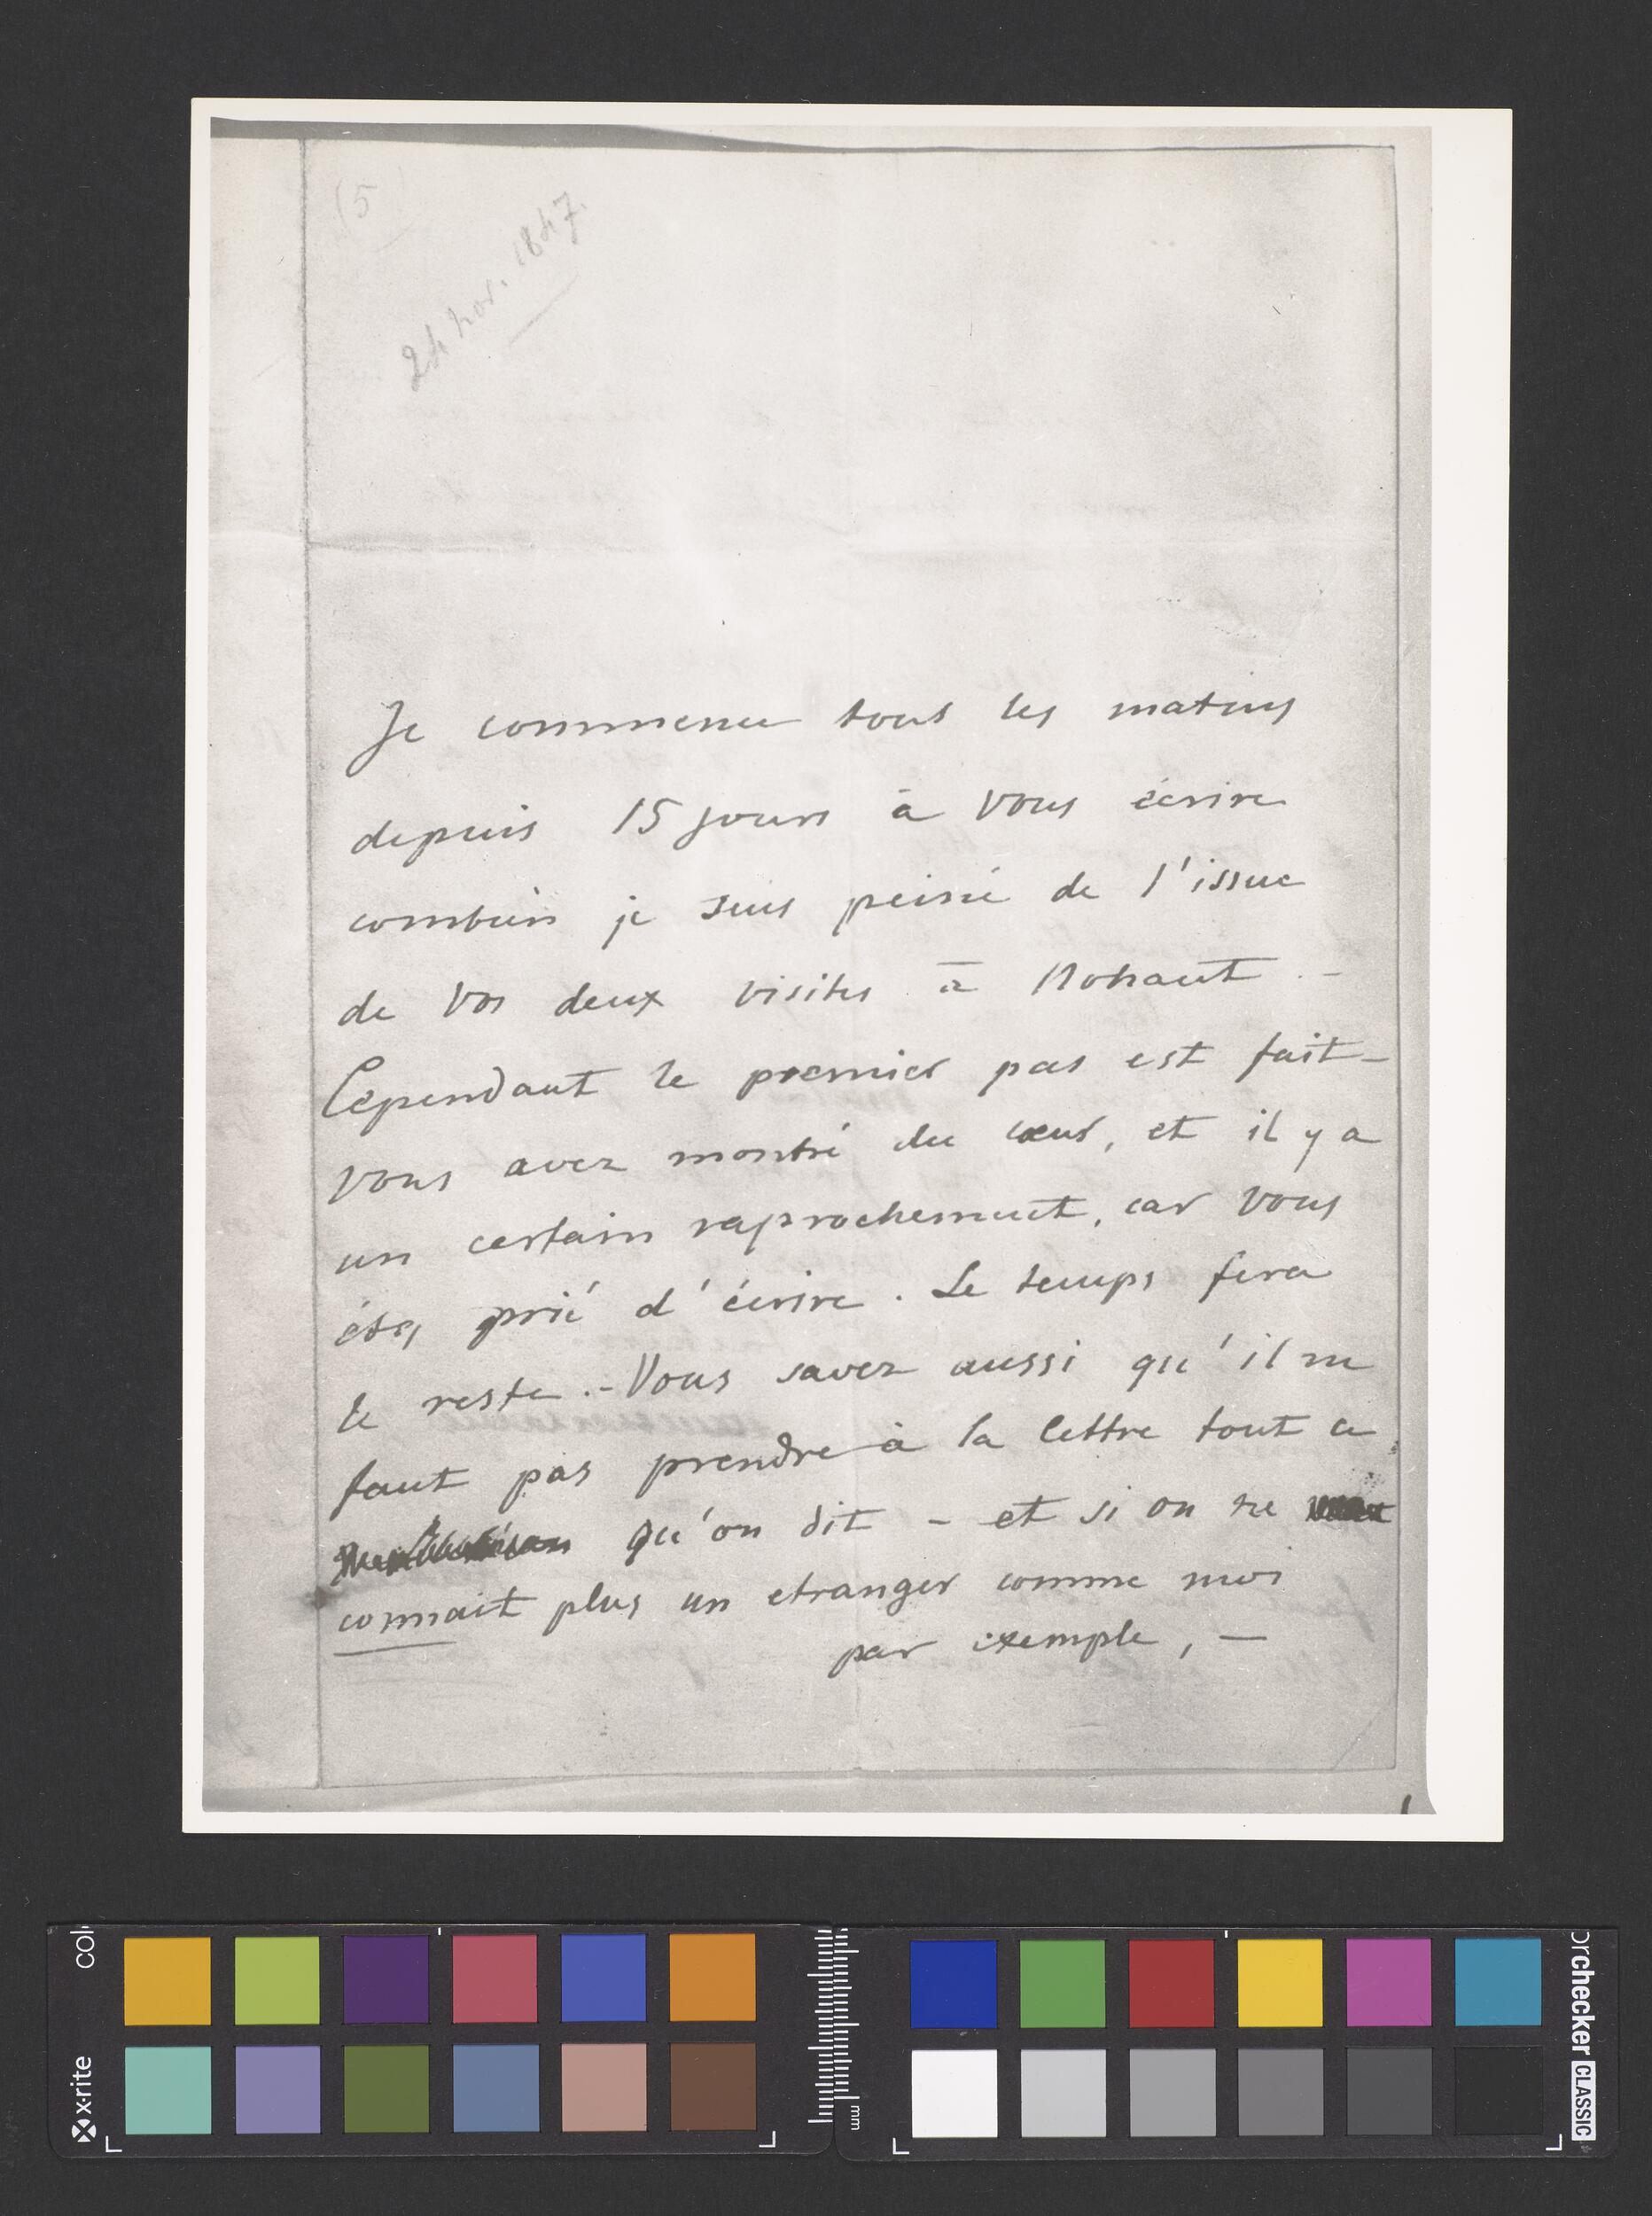 (5
24 nov. 1847.
Je commence tous les matins
depuis 15 jours à vous écrire
combien je suis peiné de l'issue
de vos deux visites à Nohant -
Cependant le premier pas est fait -
vous avez montré du cœur, et il y a
un certain raprochement, car vous
étes prié d'écrire. Le temps fera
le reste. - Vous savez aussi qu'il ne
faut pas prendre à la lettre tout ce
qu'on dit - et si on ne
connait plus un etranger comme moi
par exemple, -
x·rite
col
mm
orchecker CLASSIC